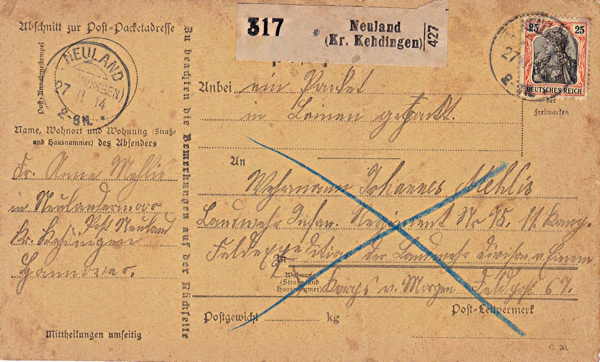 Abschnitt zur Post-Packetadresse
317
Neuland
(Kr. Kehdingen)
427
25 25
DEUTSCHES REICH
NEULAND
(KEHDINGEN)
27 11 14
2-3N.
Post-Annahmestempel
Zu beachten die Bemerkungen auf der Rückseite
Freimarken
Anbei ein Packet
in Leinen gepackt.
Name, Wohnort und Wohnung (Straße
und Hausnummer) des Absenders
Fr. Anna Mehlis
in Neulandermoor
Post Neuland
Kr. Kehdingen
Hannover.
An
Wehrmann Johannes Mehlis
Landwehr Infan. Regiment Nr. 75. 11 Komp.
Feldexpedition der Landwehr Division
Wohnung
(Straße und
Hausnummer)
v. Morgen Feldpost
Postgewicht kg
Post-Leitvermerk
Mittheilungen umseitig